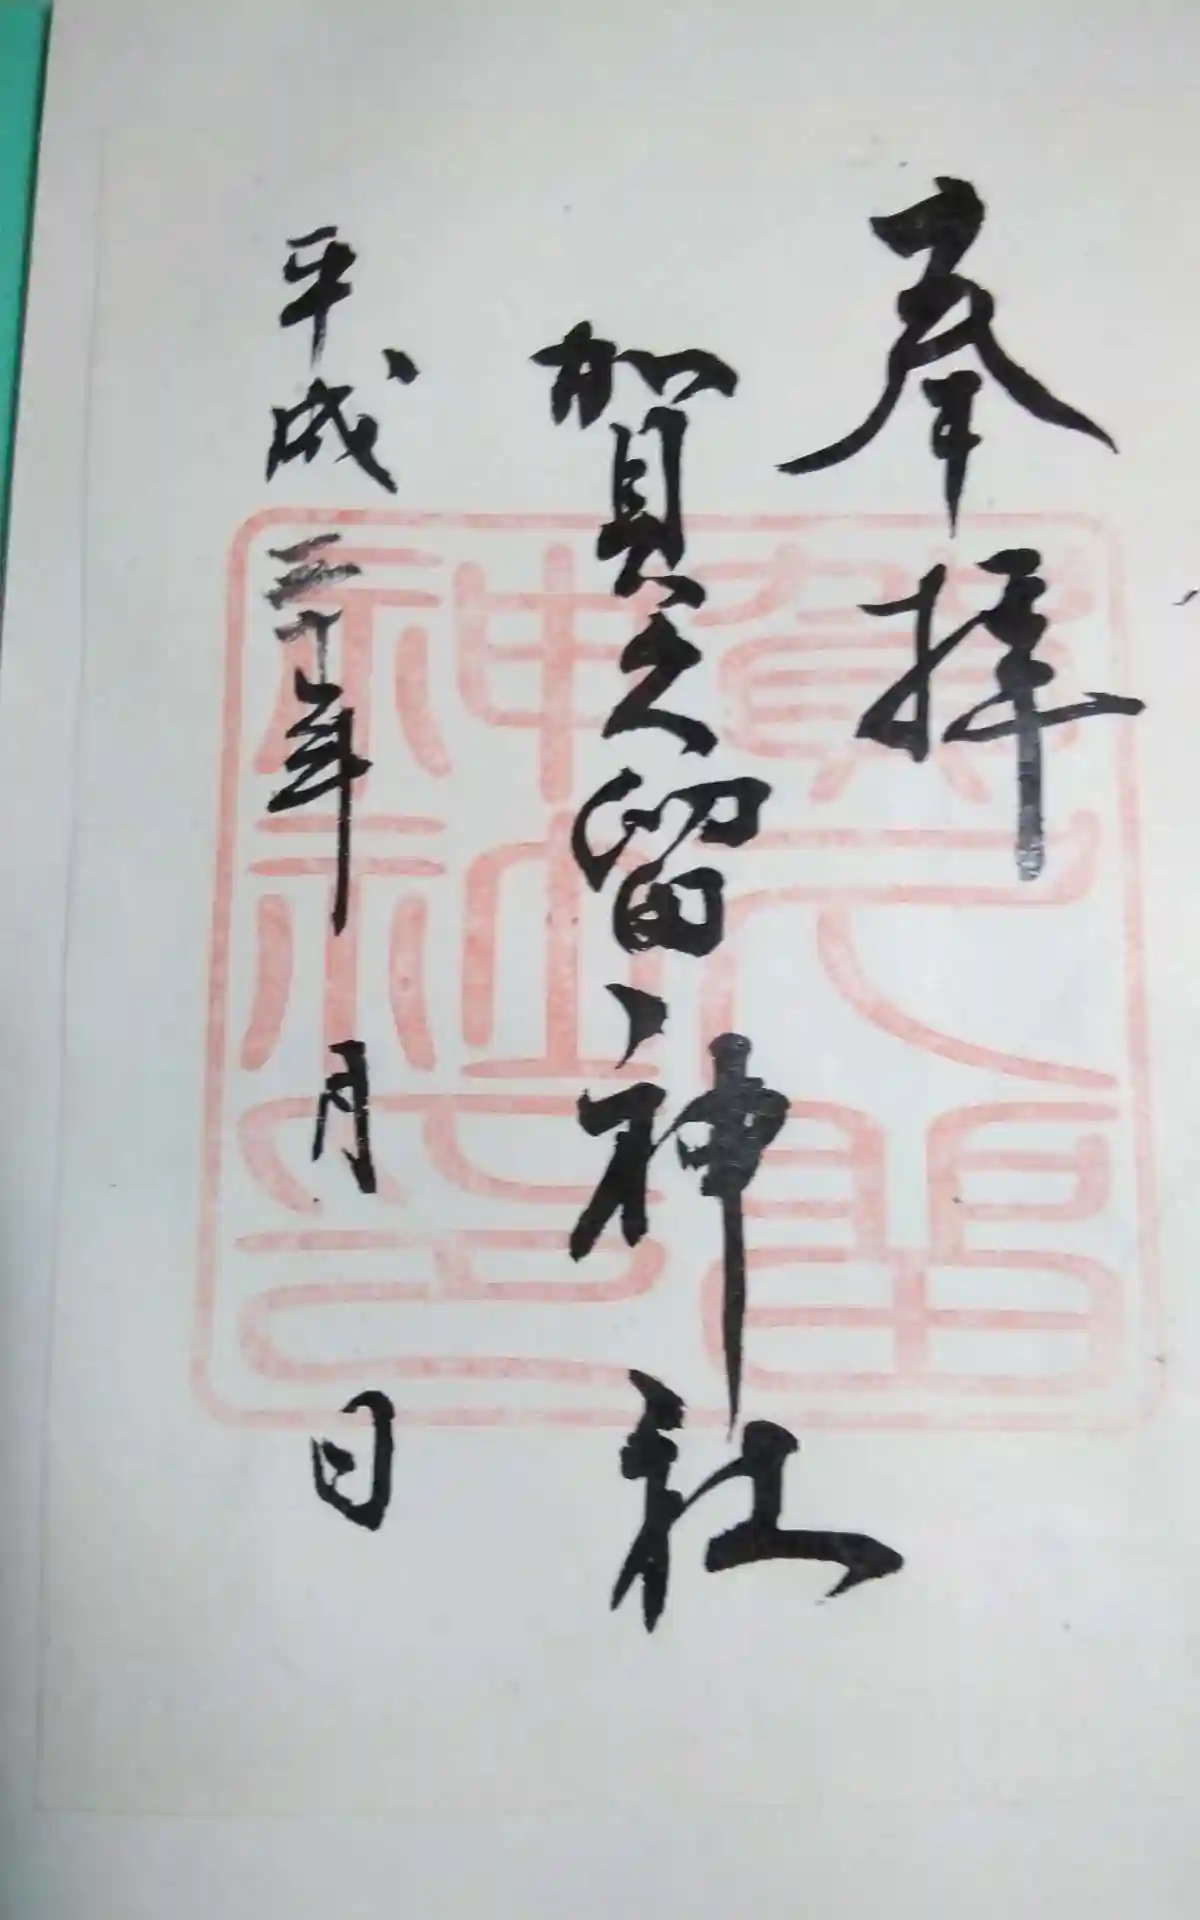 奉拝
賀久留神社
平成三十年 月 日
賀久留
神社印